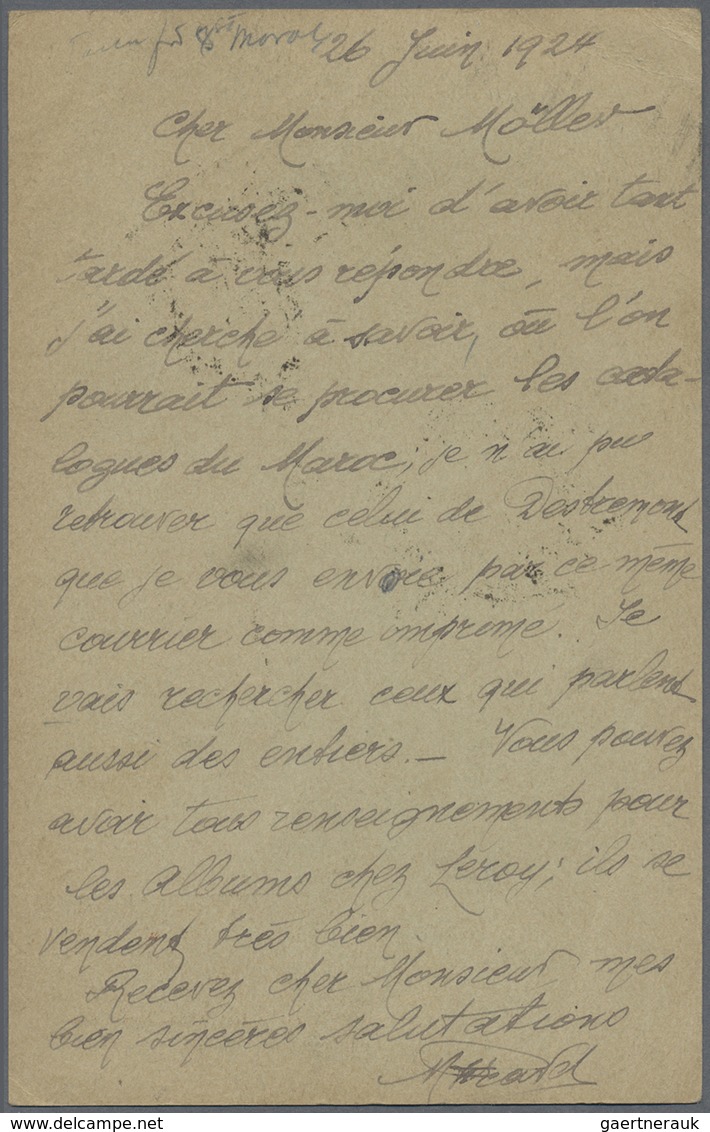 26 Juin 1924
Cher Monsieur Möller
Excusez-moi d'avoir tant
tardé à vous répondre, mais
j'ai cherché à savoir, où l'on
pourrait se procurer les cata-
logues du Maroc; je n'ai pu
retrouver que celui de Destremont
que je vous envoie par ce même
courrier comme imprimé. Je
vais rechercher ceux qui parlent
aussi des entiers. — Vous pouvez
avoir tous renseignements pour
les Albums chez Léroy; ils se
vendent très bien.
Recevez cher Monsieur, mes
bien sincères salutations
delcampe.net
gaertnerauk